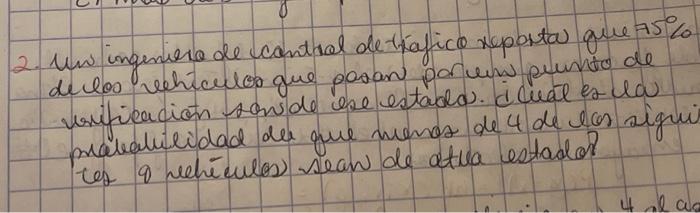 2. Un ingeniero de control de tráfico reporta que 75%
de los vehículos que pasan por un punto de
verificación son de ese estado. ¿Cuál es la
probabilidad de que menos de 4 de los sigui
tes 9 vehículos sean de otro estado?
4 de